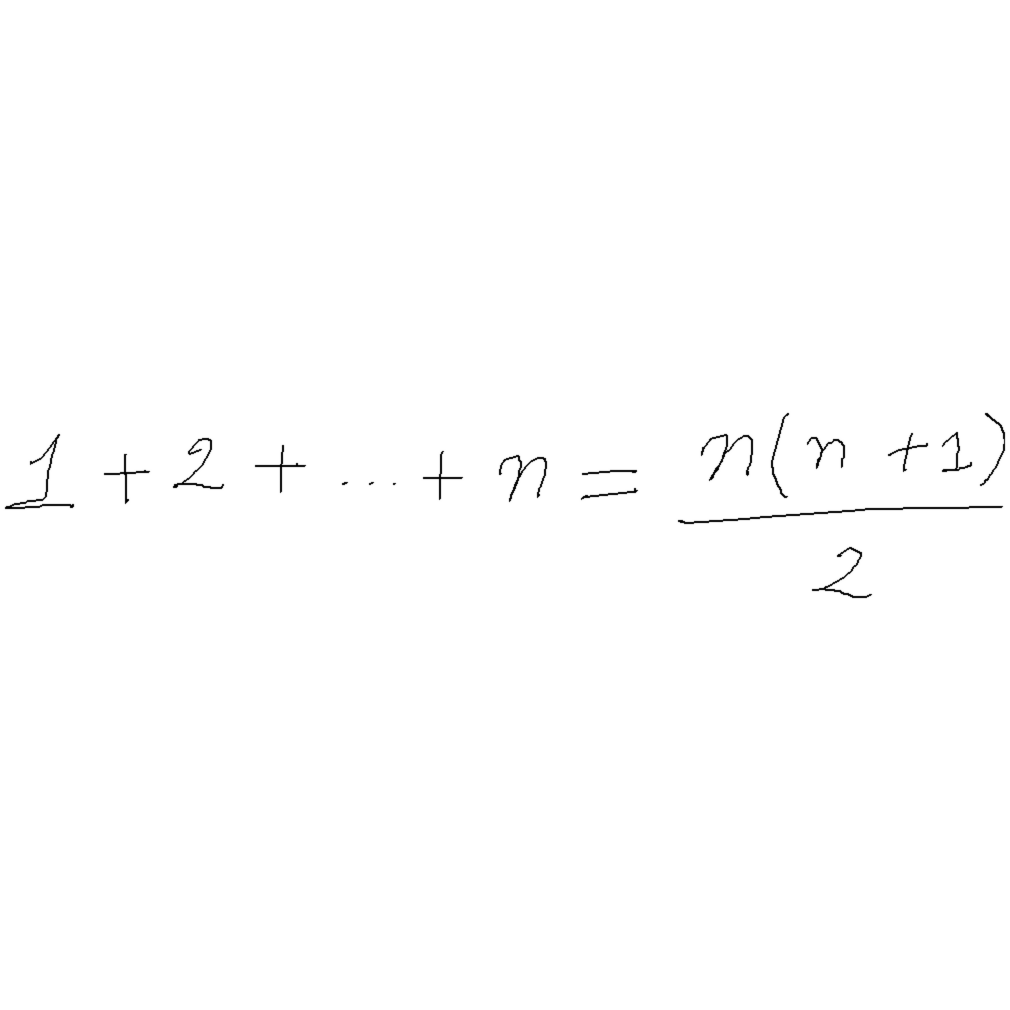 1 + 2 + ... + n = \frac{n(n+1)}{2}